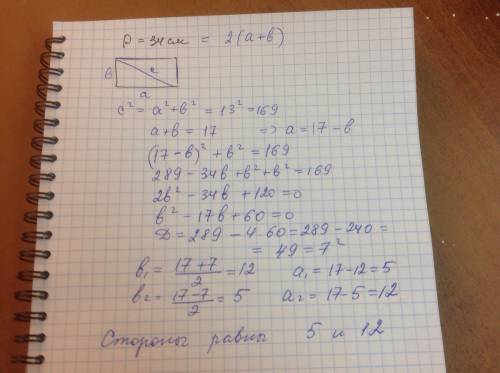 P = 34 см = 2(a+b)
b c
a
c² = a² + b² = 13² = 169
a+b = 17 => a = 17 - b
(17 - b)² + b² = 169
289 - 34b + b² + b² = 169
2b² - 34b + 120 = 0
b² - 17b + 60 = 0
D = 289 - 4·60 = 289 - 240 =
= 49 = 7²
b₁ = (17+7)/2 = 12 a₁ = 17-12 = 5
b₂ = (17-7)/2 = 5 a₂ = 17-5 = 12
Стороны равны 5 и 12